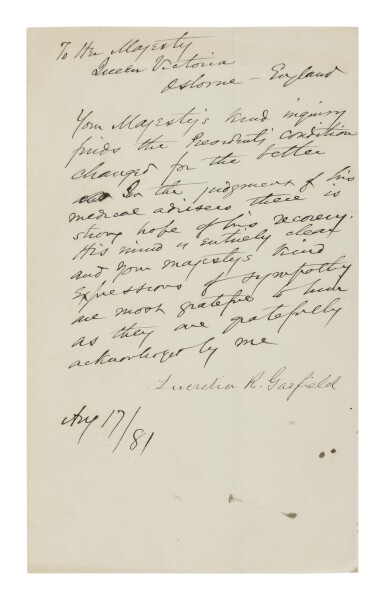 To Her Majesty
Queen Victoria
Osborne - England
Your Majesty's kind inquiry
finds the President's condition
changed for the better
In the judgment of his
medical advisers there is
strong hope of his recovery.
His mind is entirely clear
and your majesty's kind
expressions of sympathy
are most grateful to him
as they are gratefully
acknowledged by me
Lucretia R. Garfield
Aug 17/81